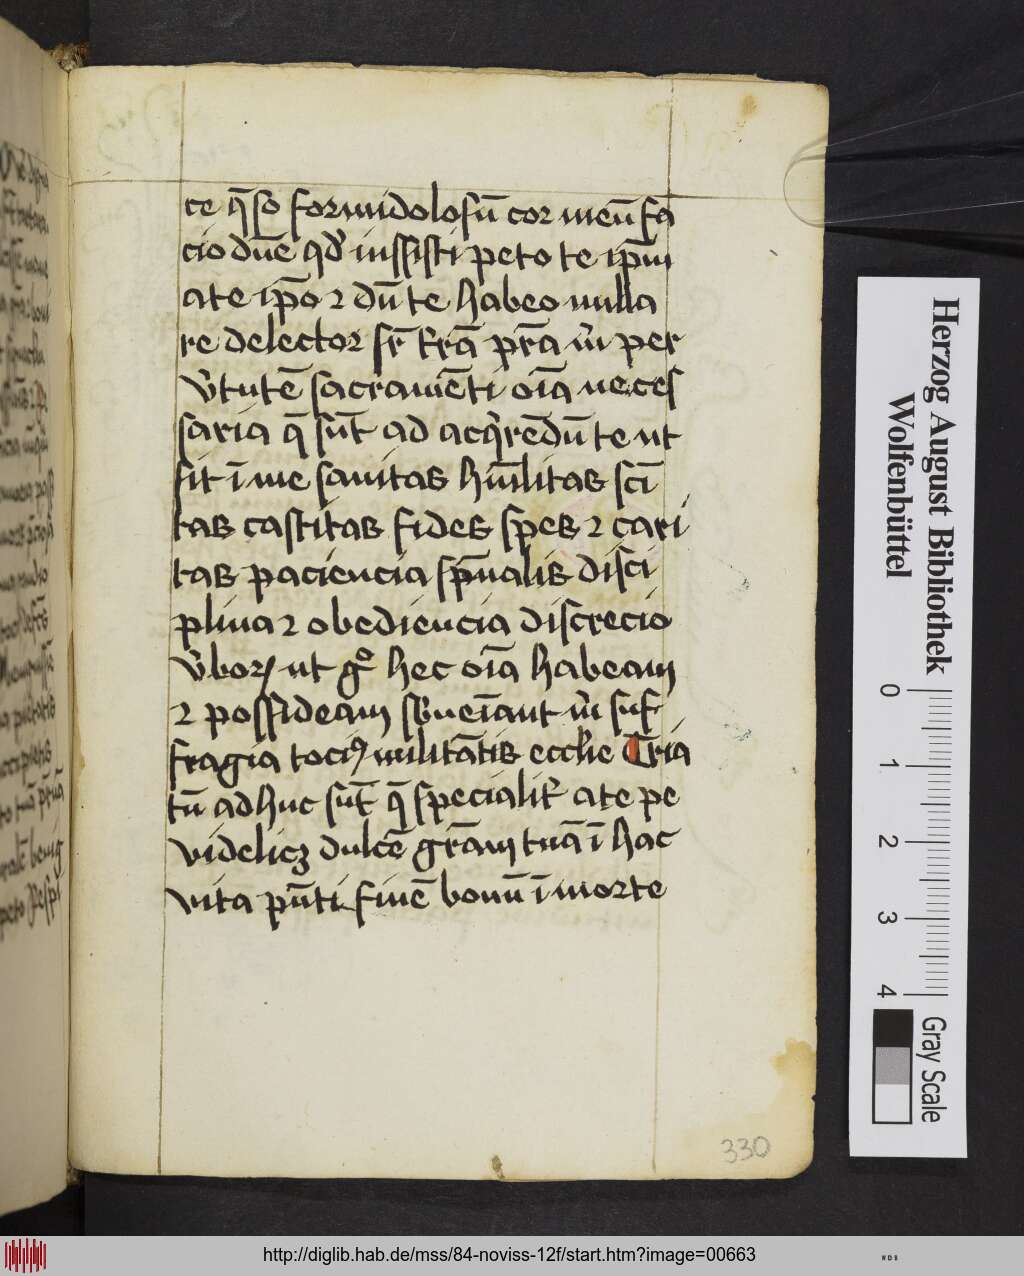 ce q̄so formidolosū cor meū fa
cio dn̄e qd̛ iussisti peto te ip̄m
a te ip̄o ⁊ dū te habeo nulla
re delector sr̄ t̄rā pr̄a m̄ per
v̛tutē sacramēti oīa neces
saria q̄ sūt ad acq̛rēdū te ut
sit ī me sanitas hūilitas scī
tas castitas fides spes ⁊ cari
tas paciencia sp̄ualis disci
plina ⁊ obediencia discrecio
v̛borꝝ ut gͦ hec oīa habeam
⁊ possideam sb̛ueīant m̄ suf
fragia tociꝰ militātis eccl̄ie Tria
tū adhuc sūt q̄ specialit̛ a te pe
videlicꝫ dulcē grām tuā ī hac
vita pn̄ti finē bonū ī morte
330
Herzog August Bibliothek
Wolfenbüttel
0 1 2 3 4
Gray Scale
http://diglib.hab.de/mss/84-noviss-12f/start.htm?image=00663